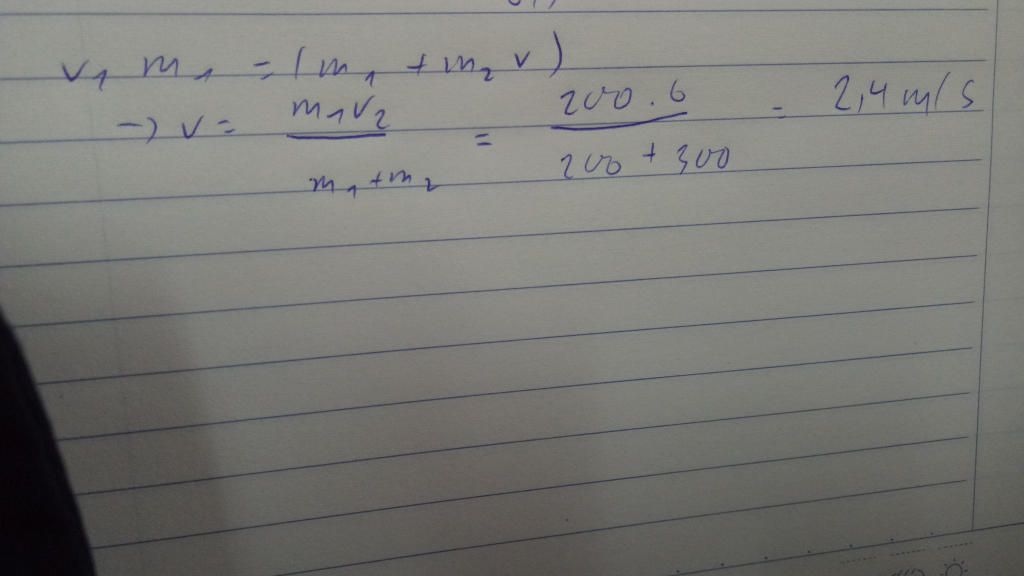 v₁ m₁ = (m₁ + m₂ v)
→ v = m₁v₂ / m₁ + m₂ = 200 · 6 / 200 + 300 = 2,4 m/s